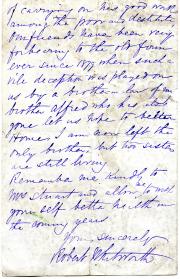 is carrying on his good work
among the poor and destitute
Our friends have been very
forbearing to the old firm
ever since 1877 when such a
vile deception was played on
us by a brother-in-law of our
brother Alfred who has also
gone let us hope to better
Homes I am now left the
only brother, but two sisters
are still living.
Remember me kindly to
Mrs Stuart and allow me to wish
your self better health in
the coming years
Yours sincerely
Robert Whitworth